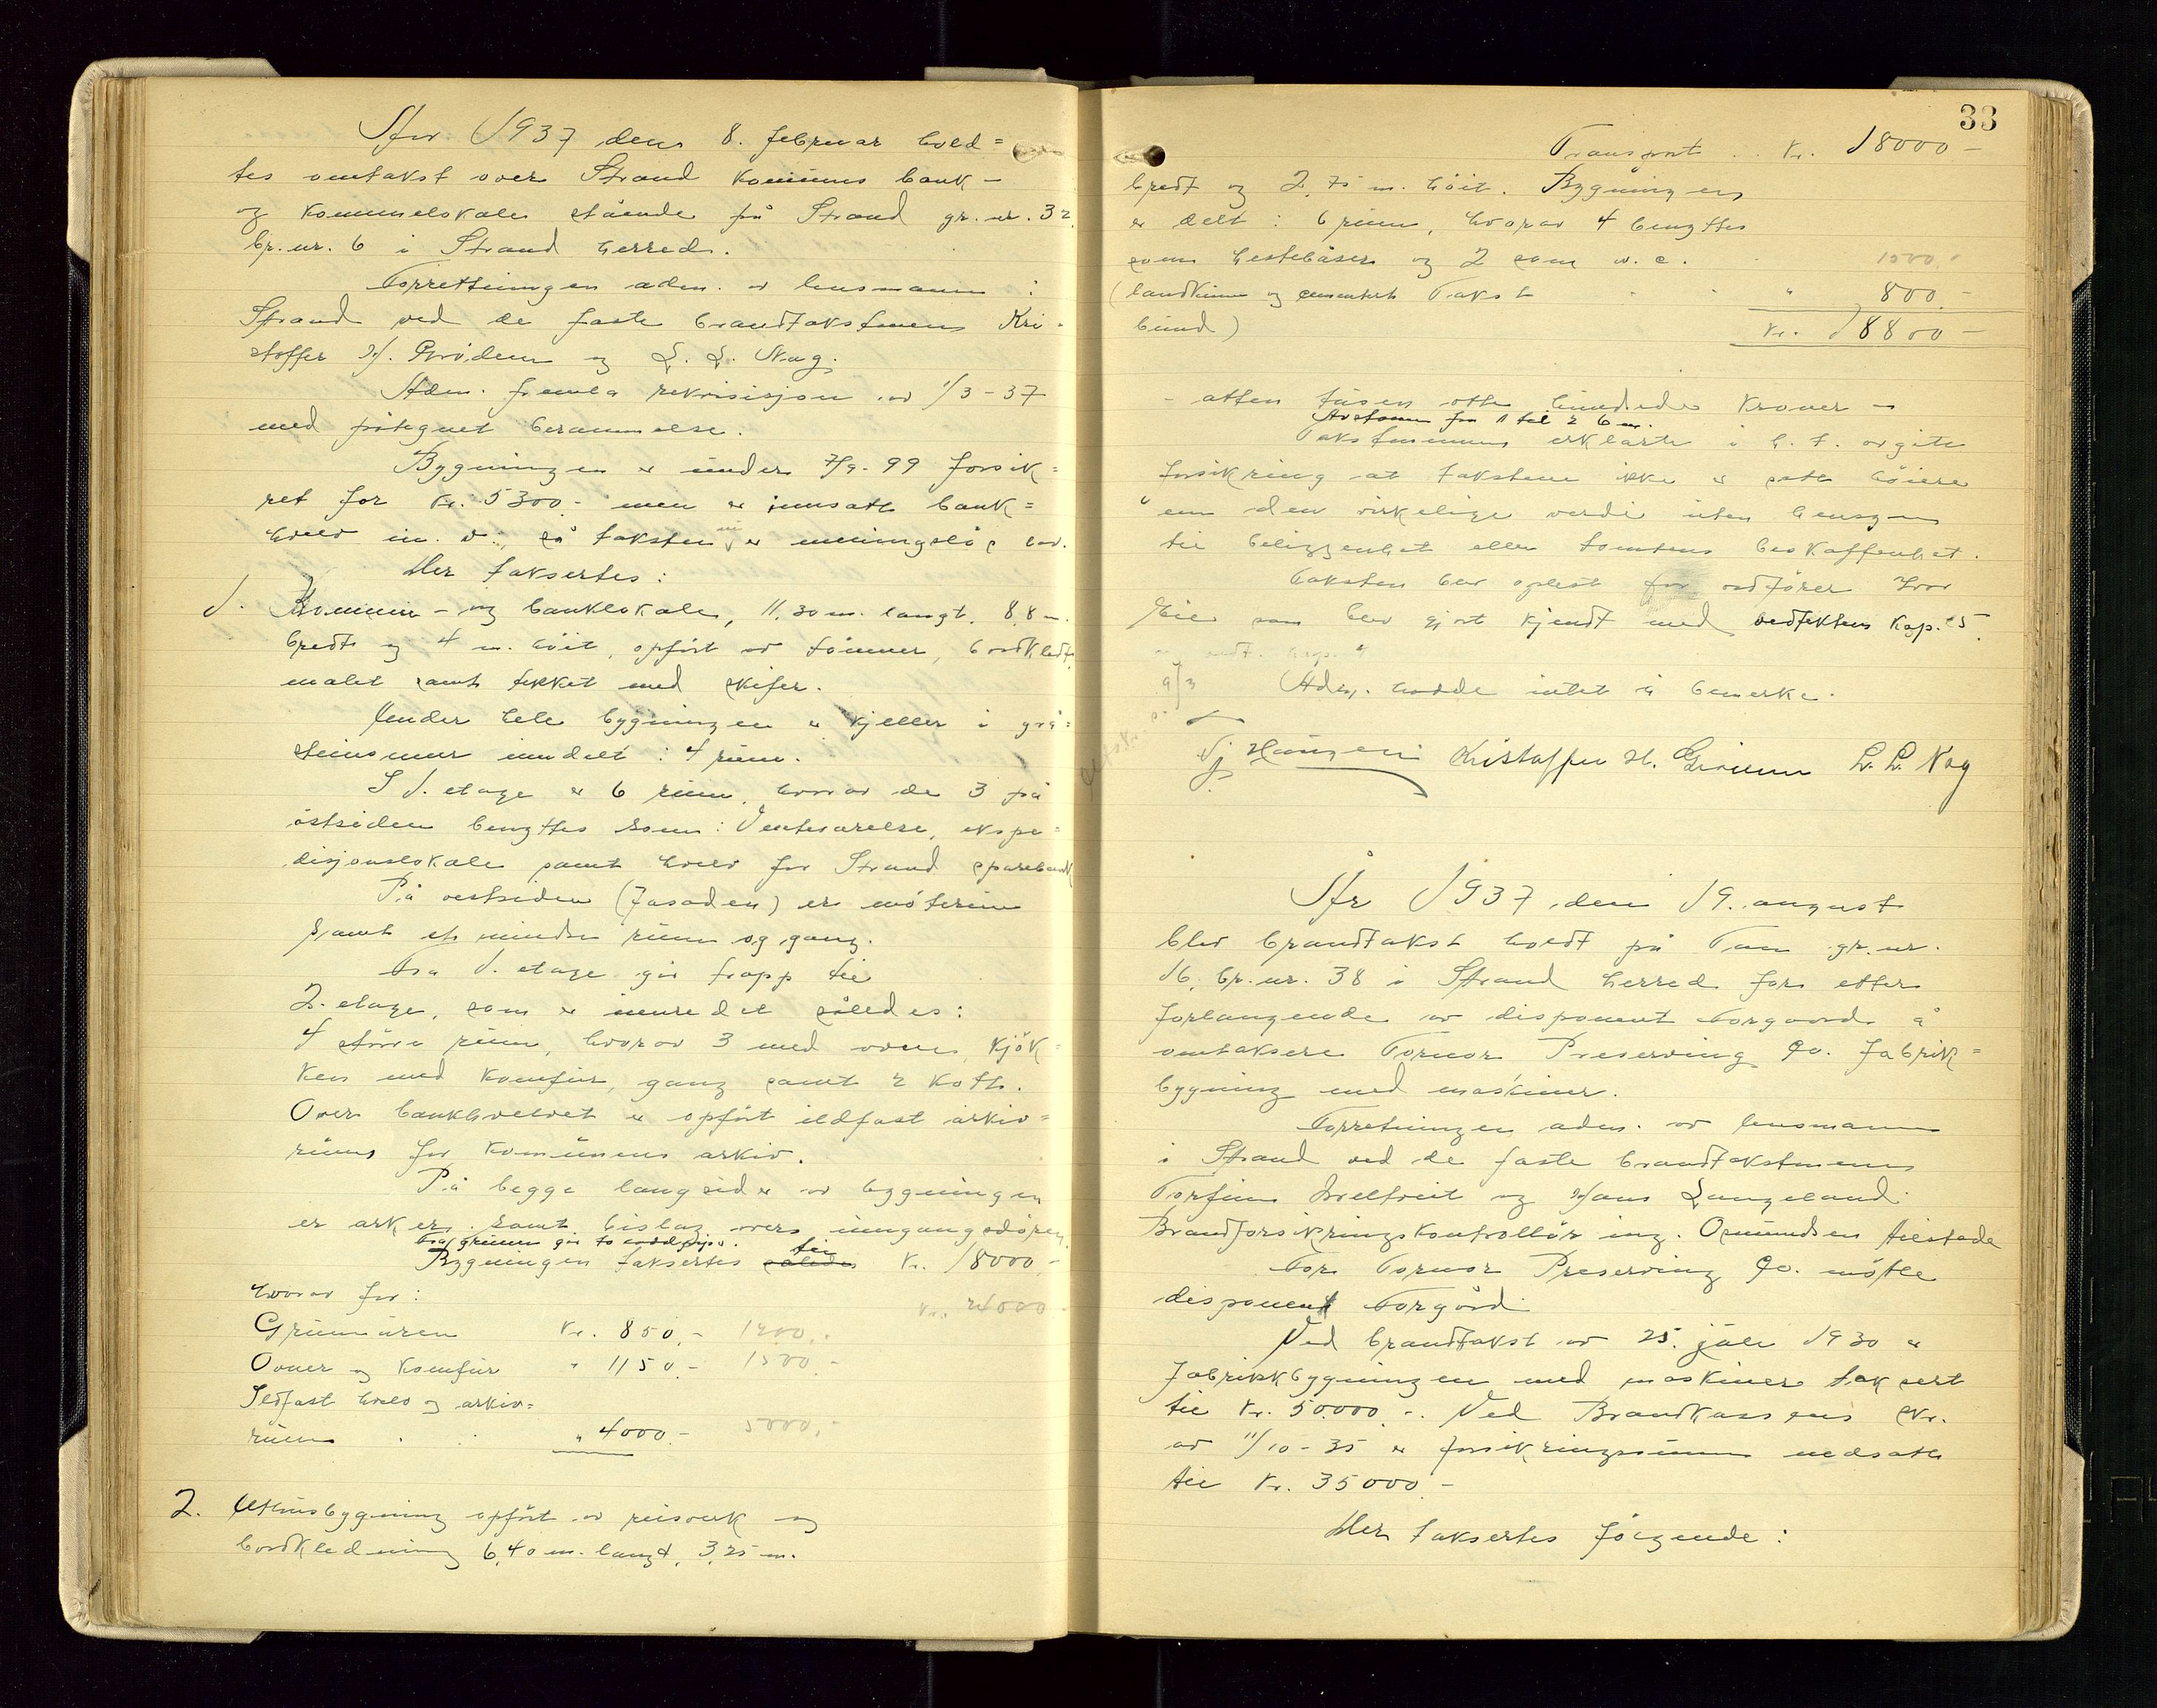 År 1937 den 8. februar hold=
tes omtakst over Strand komunes bank-
og kommelokale stående på Strand gr.nr. 32
br.nr. 6 i Strand herred.
Forrettningen adm. av lensmannen i
Strand ved de faste brandtakstmenn Kri-
stoffer H. Grödem og L. L. Nag.
Adm. fremla rekvisisjon av 1/3-37
med påtegnet berammelse.
Bygningen er under 7/9-99 forsik=
ret for kr. 5300.- men er innsatt bank=
hvelv m. v., så taksten nu er meningsløs lav.
Her taksertes:
1. Komune- og banklokale, 11,30 m. langt, 8,8 m.
bredt og 4 m. höit, opfört av tömmer, bordkledt,
malet samt tekket med skifer.
Under hele bygningen er kjeller i grå=
steinsmur inndelt i 4 rum.
I 1. etage er 6 rum, hvorav de 3 på
östsiden benyttes som: Venteværelse, ekspe=
disjonslokale samt hvelv for Strand sparebank
På vestsiden (fasaden) er möterum
samt et mindre rum og gang.
Fra 1. etage går trapp til
2. etage, som er innredet således:
4 större rum, hvorav 3 med ovner, kjök=
ken med komfur, gang samt 2 kott.
Over bankhvelvet er opfört ildfast arkiv=
rum for komunens arkiv.
På begge langsider av bygningen
er arker samt bislag over inngangsdören.
Fra grunn går to murpiper.
Bygningen taksertes således til kr. 18000.-
hvorav for: kr. 24000
Grunnmuren kr. 850.- 1200.-
Ovner og komfur " 1150.- 1500.-
Ildfast hvelv og arkiv=
rum . . " 4000.- 5000.-
2. Uthusbygning opfört av reisverk og
bordkledning 6,40 m. langt, 3,25 m.
33
Transport . . kr. 18000-
bredt og 2,75 m. höit. Bygningen
er delt i 6 rum, hvorav 4 benyttes
som hestebåser og 2 som w.c. 1500.-
(landkum og cementert Takst . . " 800.-
bund) kr. 18800-
- atten tusen otte hundrede kroner -
Avstann fra 1 til 2 6 m.
Takstmennene erklærte i h. t. avgitt
forsikring at takstene ikke er satt höiere
enn den virkelige verdi uten hensyn
til beliggenhet eller tomtens beskaffenhet.
Taksten blev oplest for ordförer Ivar
Eie som blev gjort kjendt med vedtektens kap. 5.
9/3 Adm. hadde intet å bemerke.
Hansen Kristoffer H. Grödem L. L. Nag
År 1937 den 19. august
blev brandtakst holdt på Tau gr.nr.
16, br.nr. 38 i Strand herred for etter
forlangende av disponent Torgaard å
omtaksere Tornor Preserving Co. fabrik=
bygning med maskiner.
Forretningen adm. av lensmannen
i Strand ved de faste brandtakstmenn
Torfinn Welltveit og Hans Langeland.
Brandforsikringskontrollör ing. Osmundsen tilstede
For Tornor Preserving Co. mötte
disponent Torgård.
Ved brandtakst av 25. juli 1930 er
fabrikkbygningen med maskiner taksert
til kr. 50.000.-. Ved Brandkassens skr.
av 11/10-35 er forsikringssummen nedsatt
til kr. 35000.-
Her taksertes fölgende: